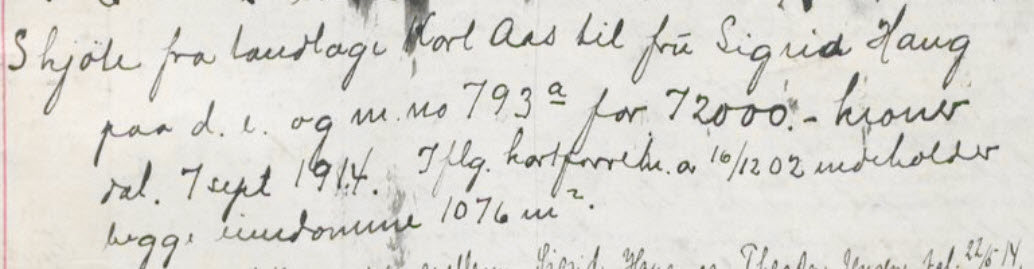 Skjøte fra tandlæge Karl Aas til fru Sigrid Haug
paa d. e. og m. no 793 a for 72000.- kroner
dat. 7 sept 1914. Iflg. kartforretn. av 16/12 02 indeholder
begge eiendomme 1076 m².
Sigrid Haug og dat. 22/5 14.